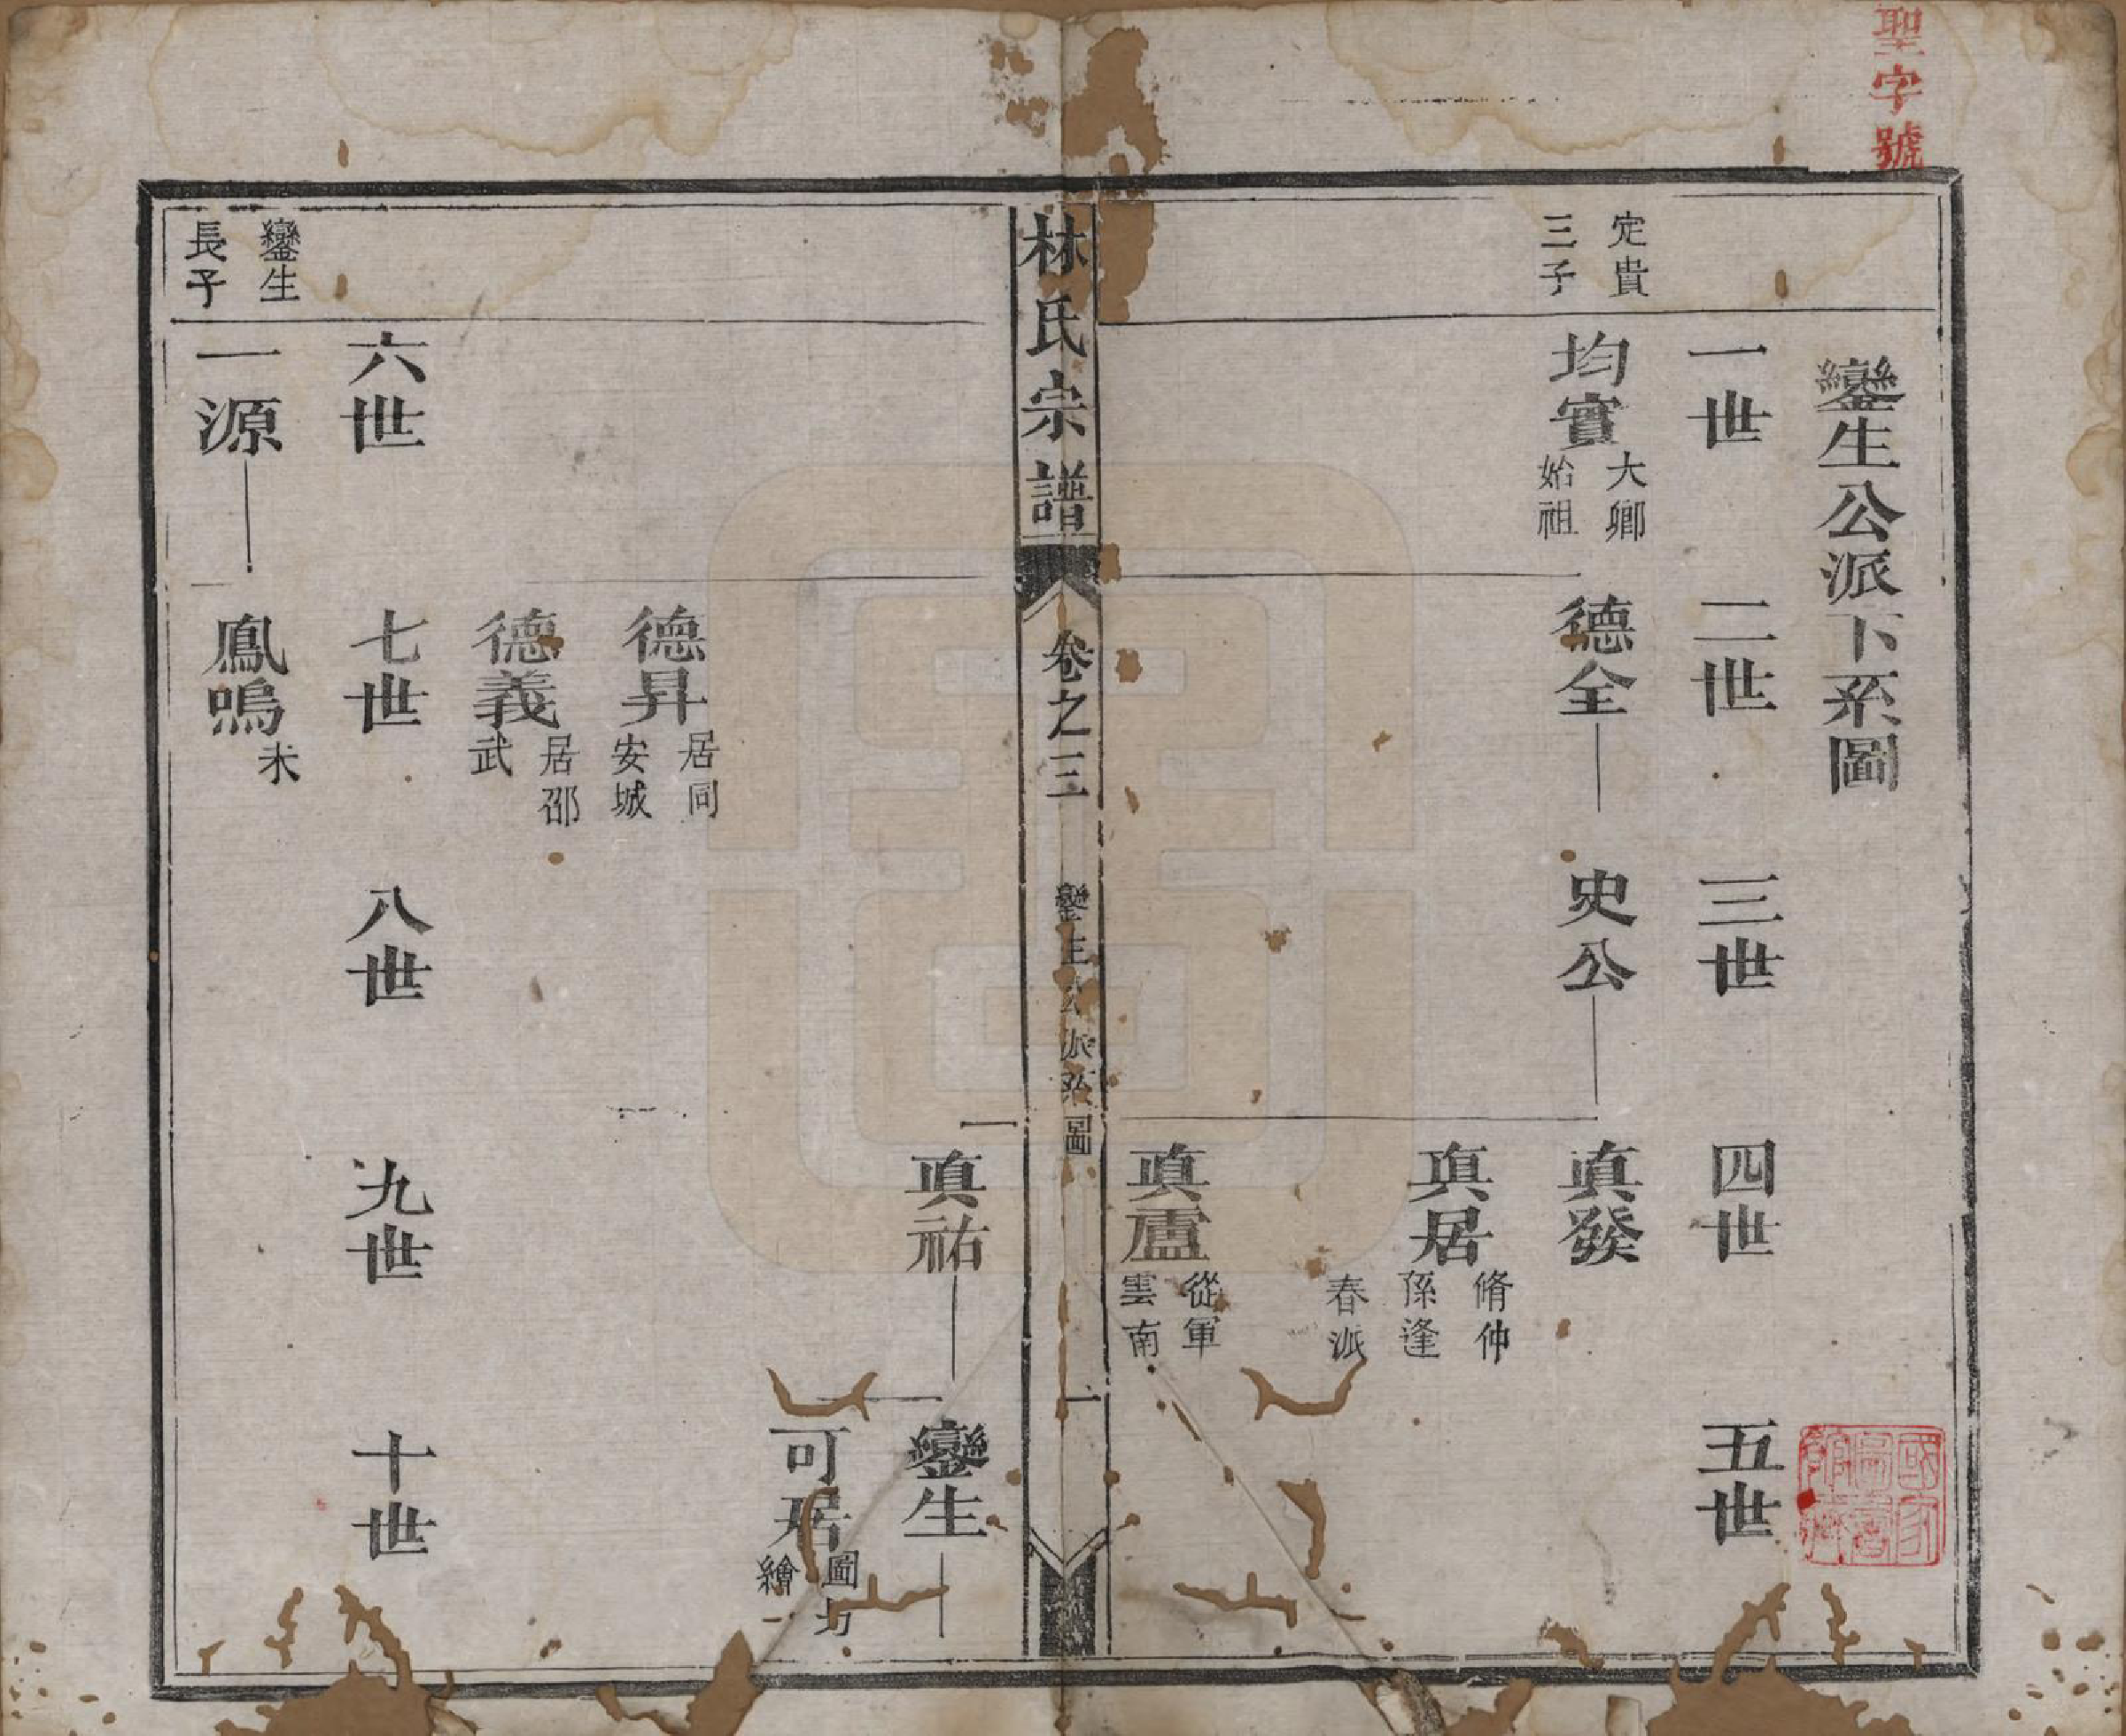 聖字號
鑾生公派下系圖
一世 二世 三世 四世 五世
定貴
三子
均實 大卿
始祖
德全 史公 真發
真居 脩仲
孫逢
春派
真盧 從軍
雲南
林氏宗譜 卷之三 鑾生公派系圖 一
真祐 鑾生
可居 圖另
繪
德昇 居同
安城
德義 居邵
武
六世 七世 八世 九世 十世
鑾生
長子
一源 鳳鳴 未
國家圖書館藏